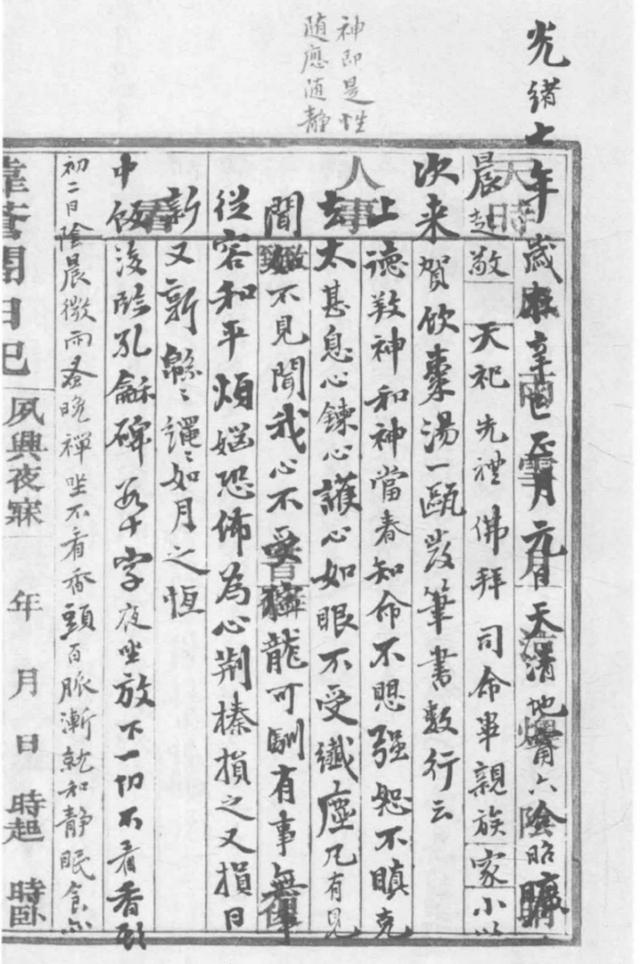 神即是性
随應随静
光緒七年歲在辛巳正月元日天清地甯六陰昭曠
晨起敬天祀先禮佛拜司命畢親族家小以
次来賀飲棗湯一甌發筆書數行云
上德敦神和神當春知命不惑强恕不瞋克
去太甚息心鍊心護心如眼不受纖塵凡有見
聞如不見聞我心不受獰龍可馴有事無事
從容和平煩惱恐怖為心荆榛損之又損日
新又新緜緜繩繩如月之恆
中飯後臨孔龢碑数十字夜坐放下一切不看香
初二日陰晨微雨蚤晚禪坐不看香頭百脈漸就和静眠食
日記
夙興夜寐
年
月
日
時起
時卧
天時
人事